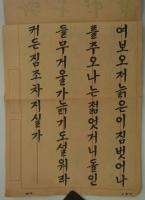 여보오저늙은이짐벗어나
를주오나는젊엇거니돌인
들무거울가늙기도설워라
커든짐조차지실가